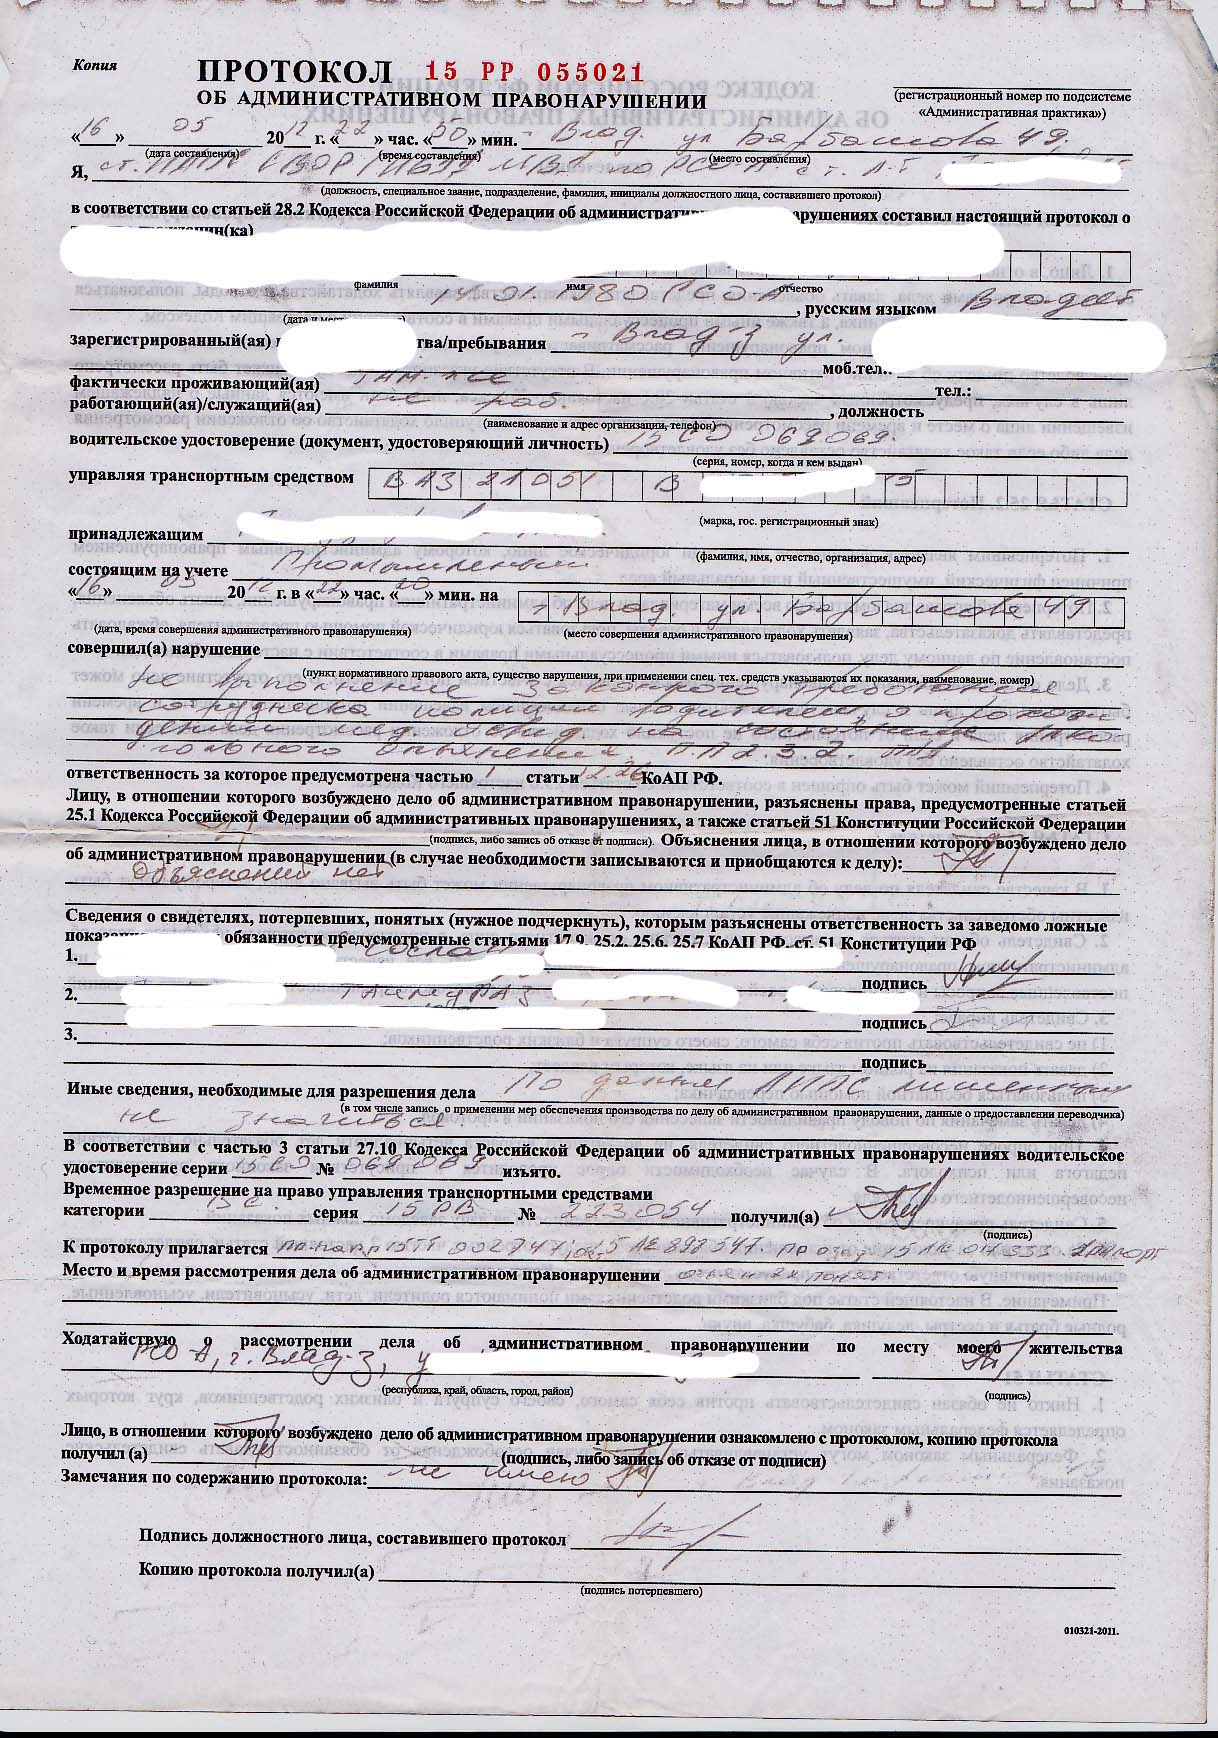 Копия
ПРОТОКОЛ 15 РР 055021
ОБ АДМИНИСТРАТИВНОМ ПРАВОНАРУШЕНИИ
(регистрационный номер по подсистеме
«Административная практика»)
«16» 05 2012 г. «22» час. «50» мин. г. Влад. ул Барбашова 49.
(дата составления) (время составления) (место составления)
Я, ст. МВД по РСО-А ст. л-т
(должность, специальное звание, подразделение, фамилия, инициалы должностного лица, составившего протокол)
в соответствии со статьей 28.2 Кодекса Российской Федерации об административ рушениях составил настоящий протокол о
ин(ка)
фамилия имя отчество
14.01.1980 РСО-А, русским языком Владеет
зарегистрированный(ая) тва/пребывания г. Влад-з ул.
моб.тел..
фактически проживающий(ая) там-же тел.:
работающий(ая)/служащий(ая) не раб. , должность
(наименование и адрес организации, телефон)
водительское удостоверение (документ, удостоверяющий личность) 15 СО 069069.
(серия, номер, когда и кем выдан)
управляя транспортным средством ВАЗ 21051 В 15
(марка, гос. регистрационный знак)
принадлежащим
(фамилия, имя, отчество, организация, адрес)
состоящим на учете Промышленный
«16» 05 2012 г. в «22» час. «20» мин. на г. Влад. ул. Барбашова 49
(дата, время совершения административного правонарушения) (место совершения административного правонарушения)
совершил(а) нарушение
(пункт нормативного правового акта, существо нарушения, при применении спец. тех. средств указываются их показания, наименование, номер)
не выполнение законного требования
сотрудника полиции водителем, о прохож-
дении мед освид на состояние алко
гольного опьянения п.п 2.3.2 ПДД
ответственность за которое предусмотрена частью 1 статьи 12.26 КоАП РФ.
Лицу, в отношении которого возбуждено дело об административном правонарушении, разъяснены права, предусмотренные статьей
25.1 Кодекса Российской Федерации об административных правонарушениях, а также статьей 51 Конституции Российской Федерации
(подпись, либо запись об отказе от подписи). Объяснения лица, в отношении которого возбуждено дело
об административном правонарушении (в случае необходимости записываются и приобщаются к делу):
Объяснений нет
Сведения о свидетелях, потерпевших, понятых (нужное подчеркнуть), которым разъяснены ответственность за заведомо ложные
показа обязанности предусмотренные статьями 17.9, 25.2, 25.6, 25.7 КоАП РФ, ст. 51 Конституции РФ
1. Сослан
подпись
2. Таймураз
подпись
3.
подпись
Иные сведения, необходимые для разрешения дела По данным АИПС лишенным
(в том числе запись о применении мер обеспечения производства по делу об административном правонарушении, данные о предоставлении переводчика)
не значиться
В соответствии с частью 3 статьи 27.10 Кодекса Российской Федерации об административных правонарушениях водительское
удостоверение серии 15 СО № 069069 изъято.
Временное разрешение на право управления транспортными средствами
категории ВС серия 15 РВ № 223054 получил(а)
(подпись)
К протоколу прилагается 002747, АЕ 898547. 15 АК 017333. рапорт
Место и время рассмотрения дела об административном правонарушении
Ходатайствую о рассмотрении дела об административном правонарушении по месту моего жительства
РСО-А, г. Влад-з, у
(республика, край, область, город, район) (подпись)
Лицо, в отношении которого возбуждено дело об административном правонарушении ознакомлено с протоколом, копию протокола
получил (а) (подпись, либо запись об отказе от подписи)
Замечания по содержанию протокола: не имею
Подпись должностного лица, составившего протокол
Копию протокола получил(а)
(подпись потерпевшего)
010321-2011.